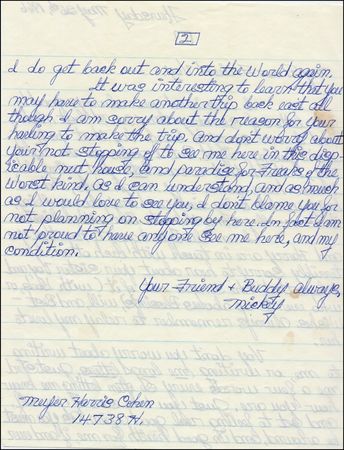 2
I do get back out and into the World again.
It was interesting to learn that you
may have to make another trip back east all
though I am sorry about the reason for your
having to make the trip. And don't worry about
your not stopping off to see me here in this disp-
icable nut house, and paradise for Freaks of the
worst kind, as I can understand, and as much
as I would love to see you, I don't blame you for
not planning on stopping by here. In fact I am
not proud to have anyone see me here, and my
condition.
Your Friend + Buddy always,
Mickey
Meyer Harris Cohen
14738 H.